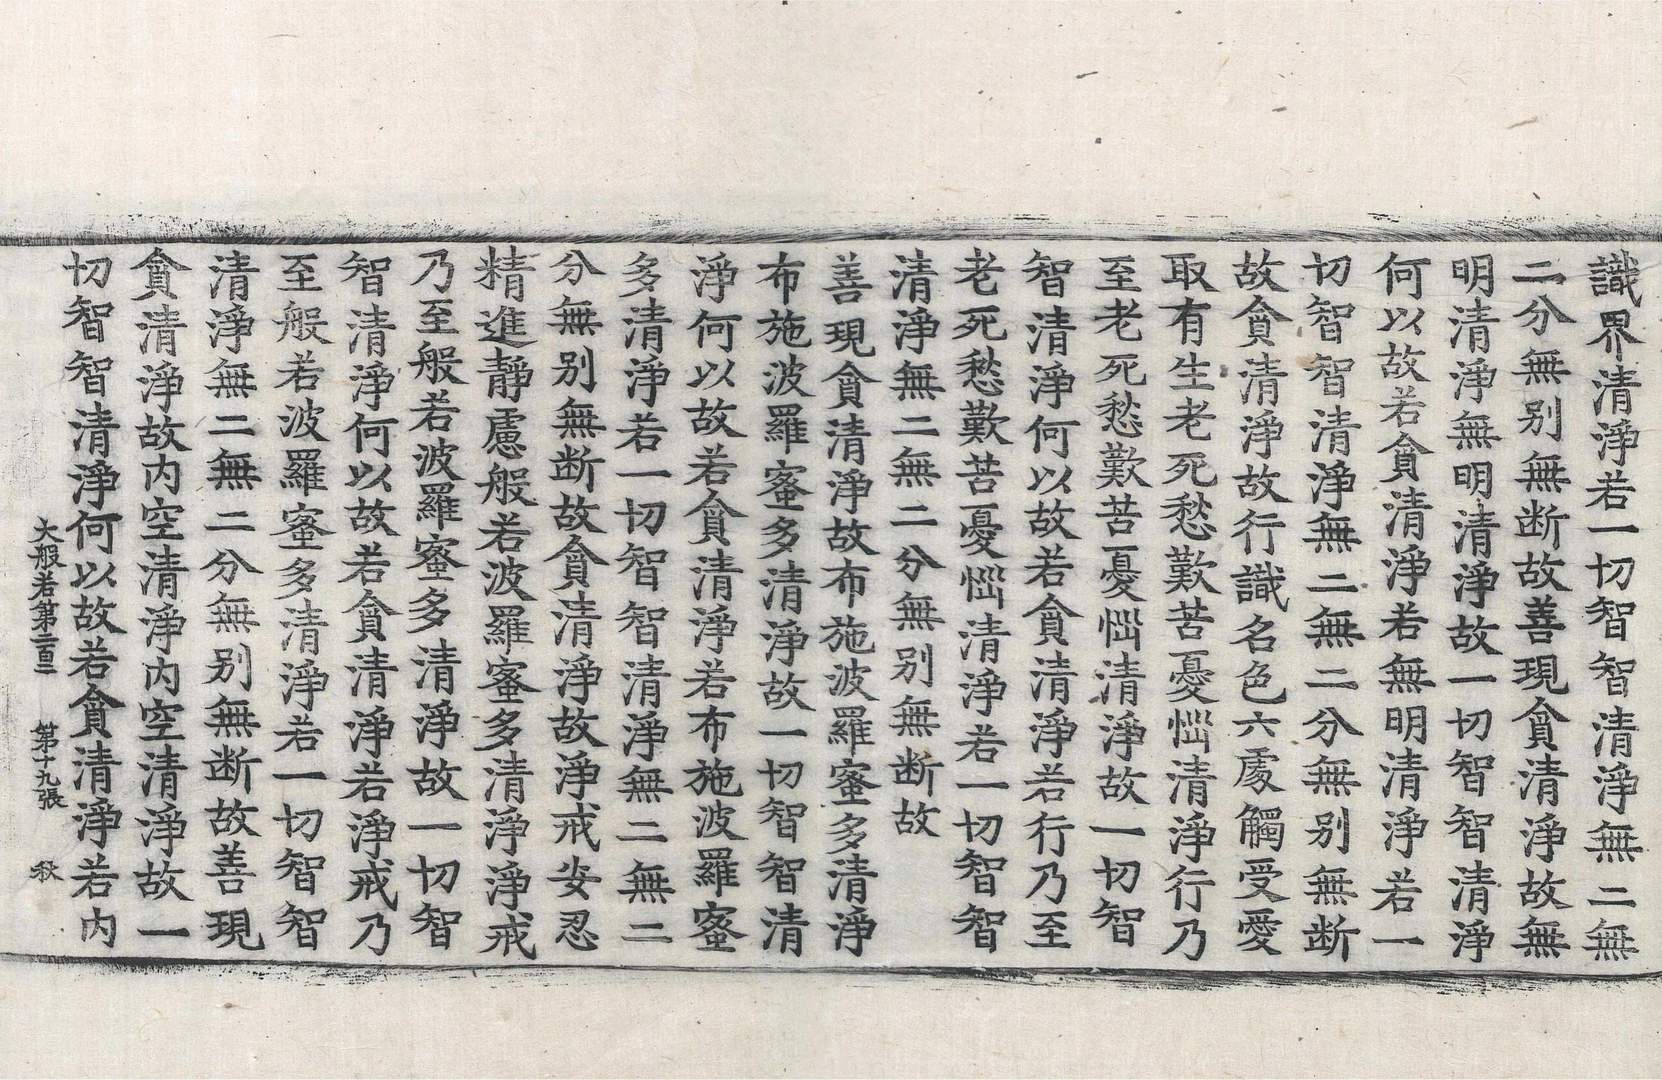 識界清淨若一切智智清淨無二無
二分無别無断故善現貪清淨故無
明清淨無明清淨故一切智智清淨
何以故若貪清淨若無明清淨若一
切智智清淨無二無二分無别無断
故貪清淨故行識名色六處觸受愛
取有生老死愁歎苦憂惱清淨行乃
至老死愁歎苦憂惱清淨故一切智
智清淨何以故若貪清淨若行乃至
老死愁歎苦憂惱清淨若一切智智
清淨無二無二分無别無断故
善現貪清淨故布施波羅蜜多清淨
布施波羅蜜多清淨故一切智智清
淨何以故若貪清淨若布施波羅蜜
多清淨若一切智智清淨無二無二
分無别無断故貪清淨故淨戒安忍
精進靜慮般若波羅蜜多清淨淨戒
乃至般若波羅蜜多清淨故一切智
智清淨何以故若貪清淨若淨戒乃
至般若波羅蜜多清淨若一切智智
清淨無二無二分無别無断故善現
貪清淨故内空清淨内空清淨故一
切智智清淨何以故若貪清淨若内
大般若第二百二 第十九張 秋